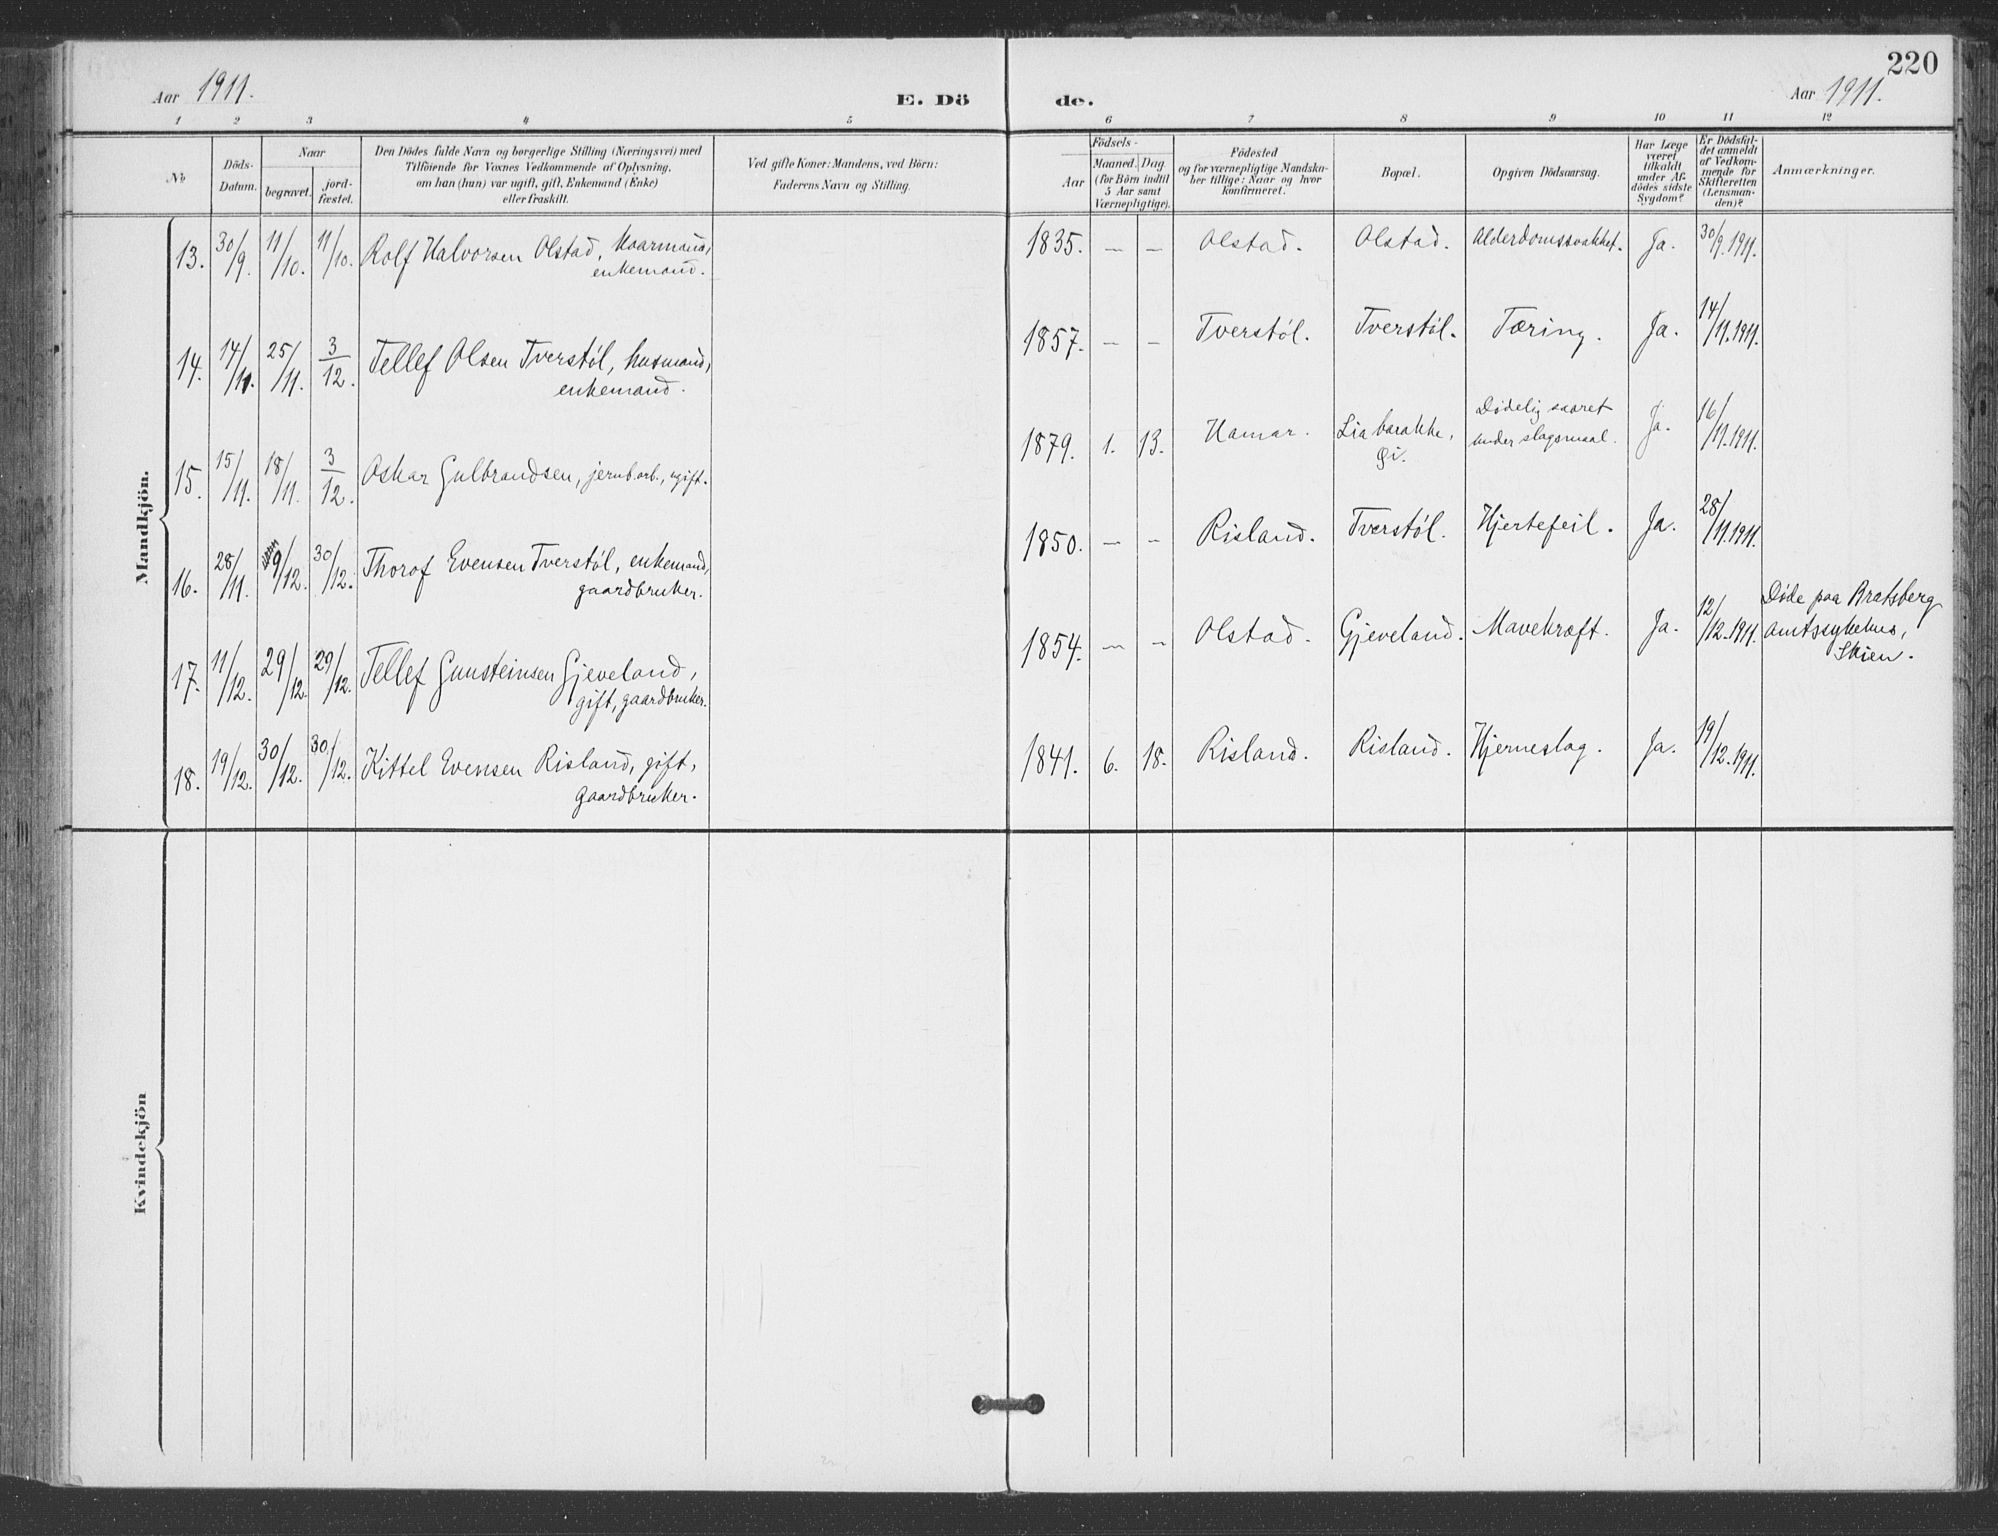 220
Aar 1911.
E. Dö
de.
Aar 1911.
1 2 3 4 5 6 7 8 9 10 11 12
No
Döds-
Datum.
Naar
begravet.
jord-
fæstet.
Den Dödes fulde Navn og borgerlige Stilling (Næringsvei) med
Tilföiende for Voxnes Vedkommende af Oplysning,
om han (hun) var ugift, gift, Enkemand (Enke)
eller fraskilt.
Ved gifte Koner: Mandens, ved Börn:
Faderens Navn og Stilling.
Födsels-
Aar
Maaned. Dag
(for Börn indtil
5 Aar samt
Værnepligtige).
Födested
og for værnepligtige Mandska-
ber tillige: Naar og hvor
konfirmeret.
Bopæl.
Opgiven Dödsaarsag.
Har Læge
været
tilkaldt
under Af-
dödes sidste
Sygdom?
Er Dödsfal-
det anmeldt
af Vedkom-
mende for
Skifteretten
(Lensman-
den)?
Anmærkninger.
Mandkjön.
13. 30/9. 11/10. 11/10. Rolf Halvorsen Olstad, kaarmand,
enkemand.
1835. — — Olstad. Olstad. Alderdomssvakhet. Ja. 30/9.1911.
14. 14/11. 25/11. 3/12. Tellef Olsen Tverstøl, husmand,
enkemand.
1857. — — Tverstøl. Tverstøl. Tæring. Ja. 14/11.1911.
15. 15/11. 18/11. 3/12. Oskar Gulbrandsen, jernb.arb., ugift.
1879. 1. 13. Hamar. Lia barakke, Dødelig saaret
under slagsmaal. Ja. 16/11.1911.
16. 28/11. 9/12. 30/12. Thorof Evensen Tverstøl, enkemand,
gaardbruker.
1850. — — Risland. Tverstøl. Hjertefeil. Ja. 28/11.1911.
17. 11/12. 29/12. 29/12. Tellef Gunsteinsen Gjeveland,
gift, gaardbruker.
1854. — — Olstad. Gjeveland. Mavekræft. Ja. 12/12.1911. Døde paa Bratsberg
amtssykehus,
Skien.
18. 19/12. 30/12. 30/12. Kittel Evensen Risland, gift,
gaardbruker.
1841. 6. 18. Risland. Risland. Hjerneslag. Ja. 19/12.1911.
Kvindekjön